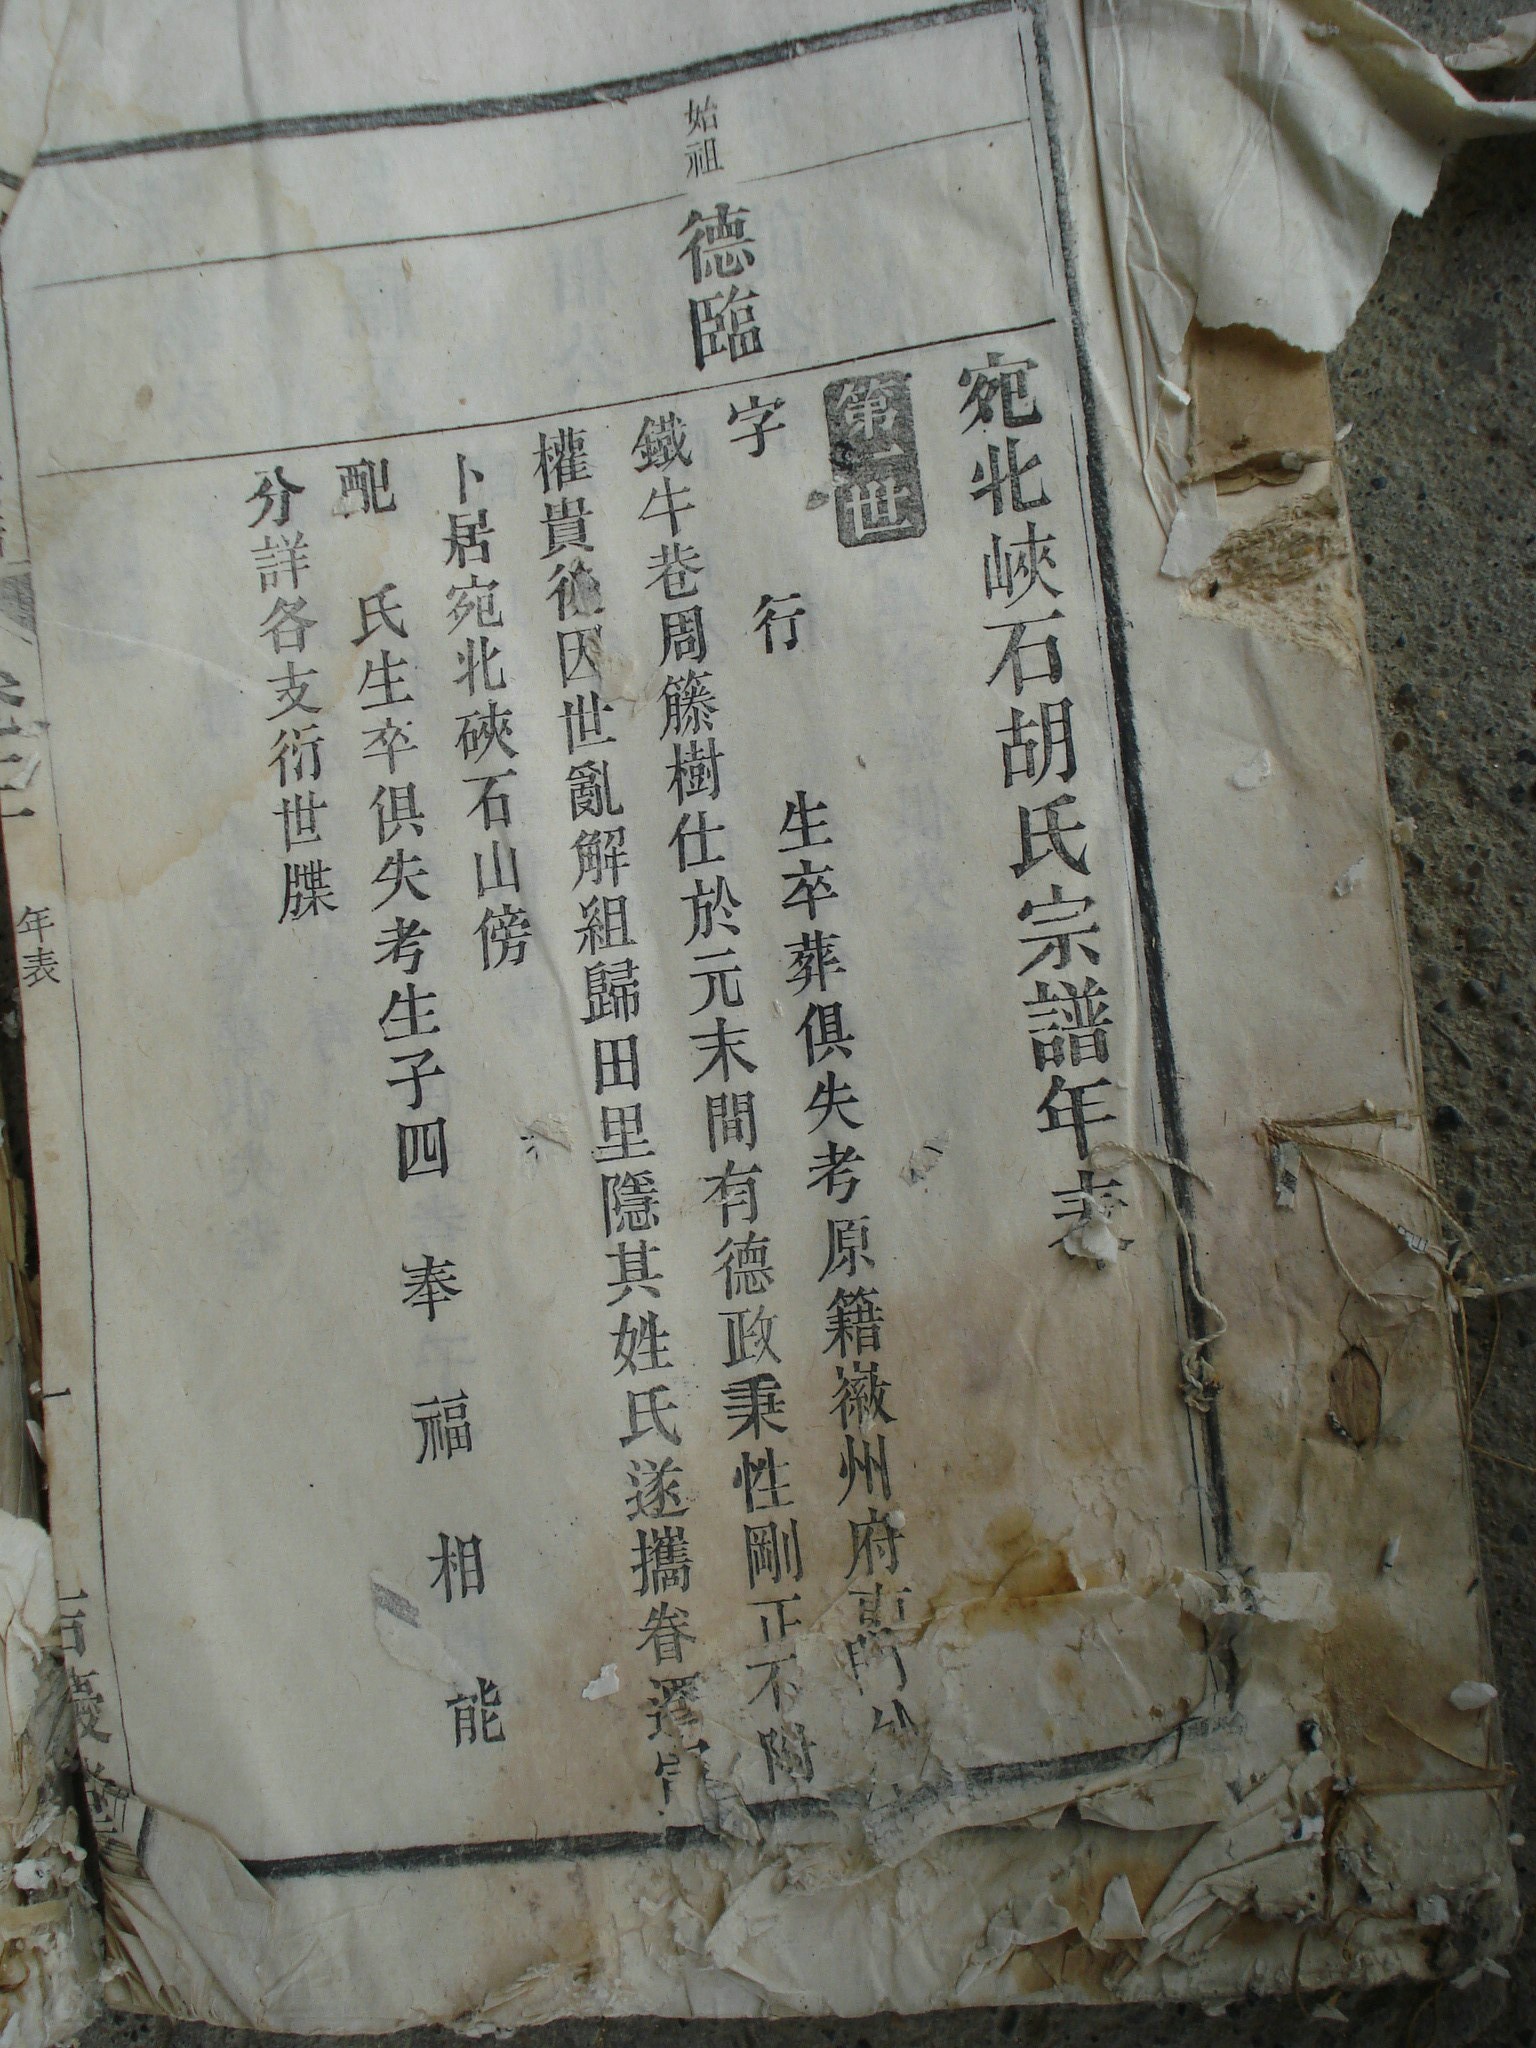 宛北峽石胡氏宗譜年表
第一世
始祖
德臨
字 行 生卒葬俱失考原籍徽州府
鐵牛巷周籐樹仕於元末間有德政秉性剛正不附
權貴後因世亂解組歸田里隱其姓氏遂攜眷
卜居宛北硤石山傍
配 氏生卒俱失考生子四 奉 福 相 能
分詳各支衍世牒
年表
一